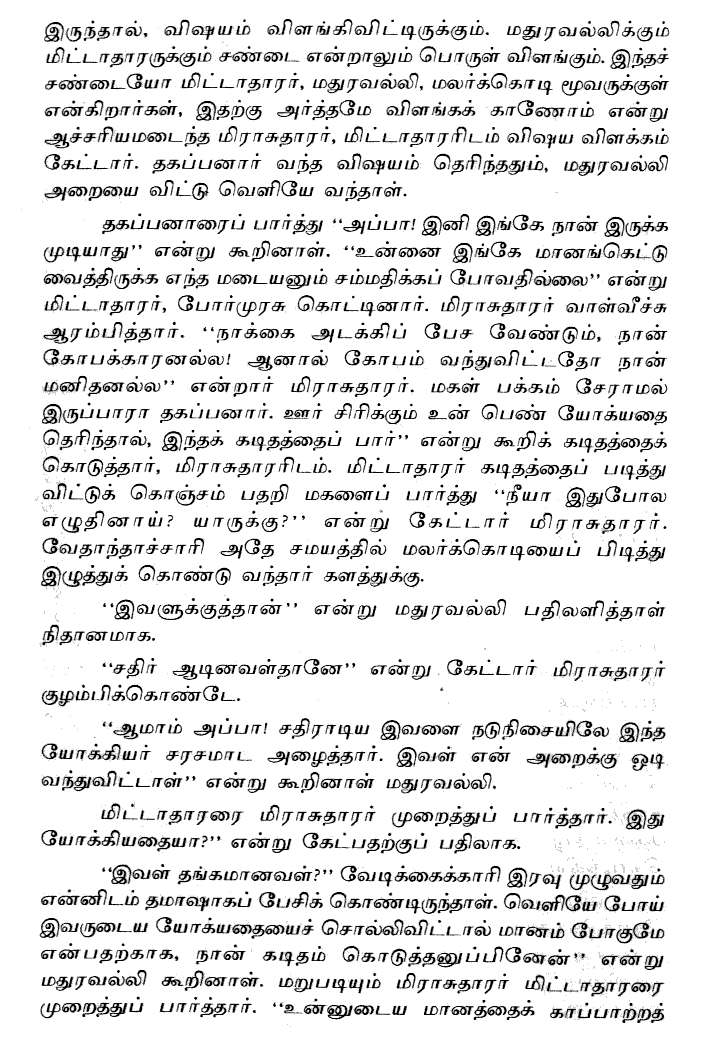 இருந்தால், விஷயம் விளங்கிவிட்டிருக்கும். மதுரவல்லிக்கும்
மிட்டாதாரருக்கும் சண்டை என்றாலும் பொருள் விளங்கும். இந்தச்
சண்டையோ மிட்டாதாரர், மதுரவல்லி, மலர்க்கொடி மூவருக்குள்
என்கிறார்கள், இதற்கு அர்த்தமே விளங்கக் காணோம் என்று
ஆச்சரியமடைந்த மிராசுதாரர், மிட்டாதாரரிடம் விஷய விளக்கம்
கேட்டார். தகப்பனார் வந்த விஷயம் தெரிந்ததும், மதுரவல்லி
அறையை விட்டு வெளியே வந்தாள்.
தகப்பனாரைப் பார்த்து ‘‘அப்பா! இனி இங்கே நான் இருக்க
முடியாது’’ என்று கூறினாள். ‘‘உன்னை இங்கே மானங்கெட்டு
வைத்திருக்க எந்த மடையனும் சம்மதிக்கப் போவதில்லை’’ என்று
மிட்டாதாரர், போர்முரசு கொட்டினார். மிராசுதாரர் வாள்வீச்சு
ஆரம்பித்தார். ‘‘நாக்கை அடக்கிப் பேச வேண்டும், நான்
கோபக்காரனல்ல! ஆனால் கோபம் வந்துவிட்டதோ நான்
மனிதனல்ல’’ என்றார் மிராசுதாரர். மகள் பக்கம் சேராமல்
இருப்பாரா தகப்பனார். ஊர் சிரிக்கும் உன் பெண் யோக்யதை
தெரிந்தால், இந்தக் கடிதத்தைப் பார்’’ என்று கூறிக் கடிதத்தைக்
கொடுத்தார், மிராசுதாரரிடம். மிட்டாதாரர் கடிதத்தைப் படித்து
விட்டுக் கொஞ்சம் பதறி மகளைப் பார்த்து ‘‘நீயா இதுபோல
எழுதினாய்? யாருக்கு?’’ என்று கேட்டார் மிராசுதாரர்.
வேதாந்தாச்சாரி அதே சமயத்தில் மலர்க்கொடியைப் பிடித்து
இழுத்துக் கொண்டு வந்தார் களத்துக்கு.
‘‘இவளுக்குத்தான்’’ என்று மதுரவல்லி பதிலளித்தாள்
நிதானமாக.
‘‘சதிர் ஆடினவள்தானே’’ என்று கேட்டார் மிராசுதாரர்
குழம்பிக்கொண்டே.
‘‘ஆமாம் அப்பா! சதிராடிய இவளை நடுநிசையிலே இந்த
யோக்கியர் சரசமாட அழைத்தார். இவள் என் அறைக்கு ஓடி
வந்துவிட்டாள்’’ என்று கூறினாள் மதுரவல்லி.
மிட்டாதாரரை மிராசுதாரர் முறைத்துப் பார்த்தார். இது
யோக்கியதையா?’’ என்று கேட்பதற்குப் பதிலாக.
‘‘இவள் தங்கமானவள்?’’ வேடிக்கைக்காரி இரவு முழுவதும்
என்னிடம் தமாஷாகப் பேசிக் கொண்டிருந்தாள். வெளியே போய்
இவருடைய யோக்யதையைச் சொல்லிவிட்டால் மானம் போகுமே
என்பதற்காக, நான் கடிதம் கொடுத்தனுப்பினேன்’’ என்று
மதுரவல்லி கூறினாள். மறுபடியும் மிராசுதாரர் மிட்டாதாரரை
முறைத்துப் பார்த்தார். ‘‘உன்னுடைய மானத்தைக் காப்பாற்றத்